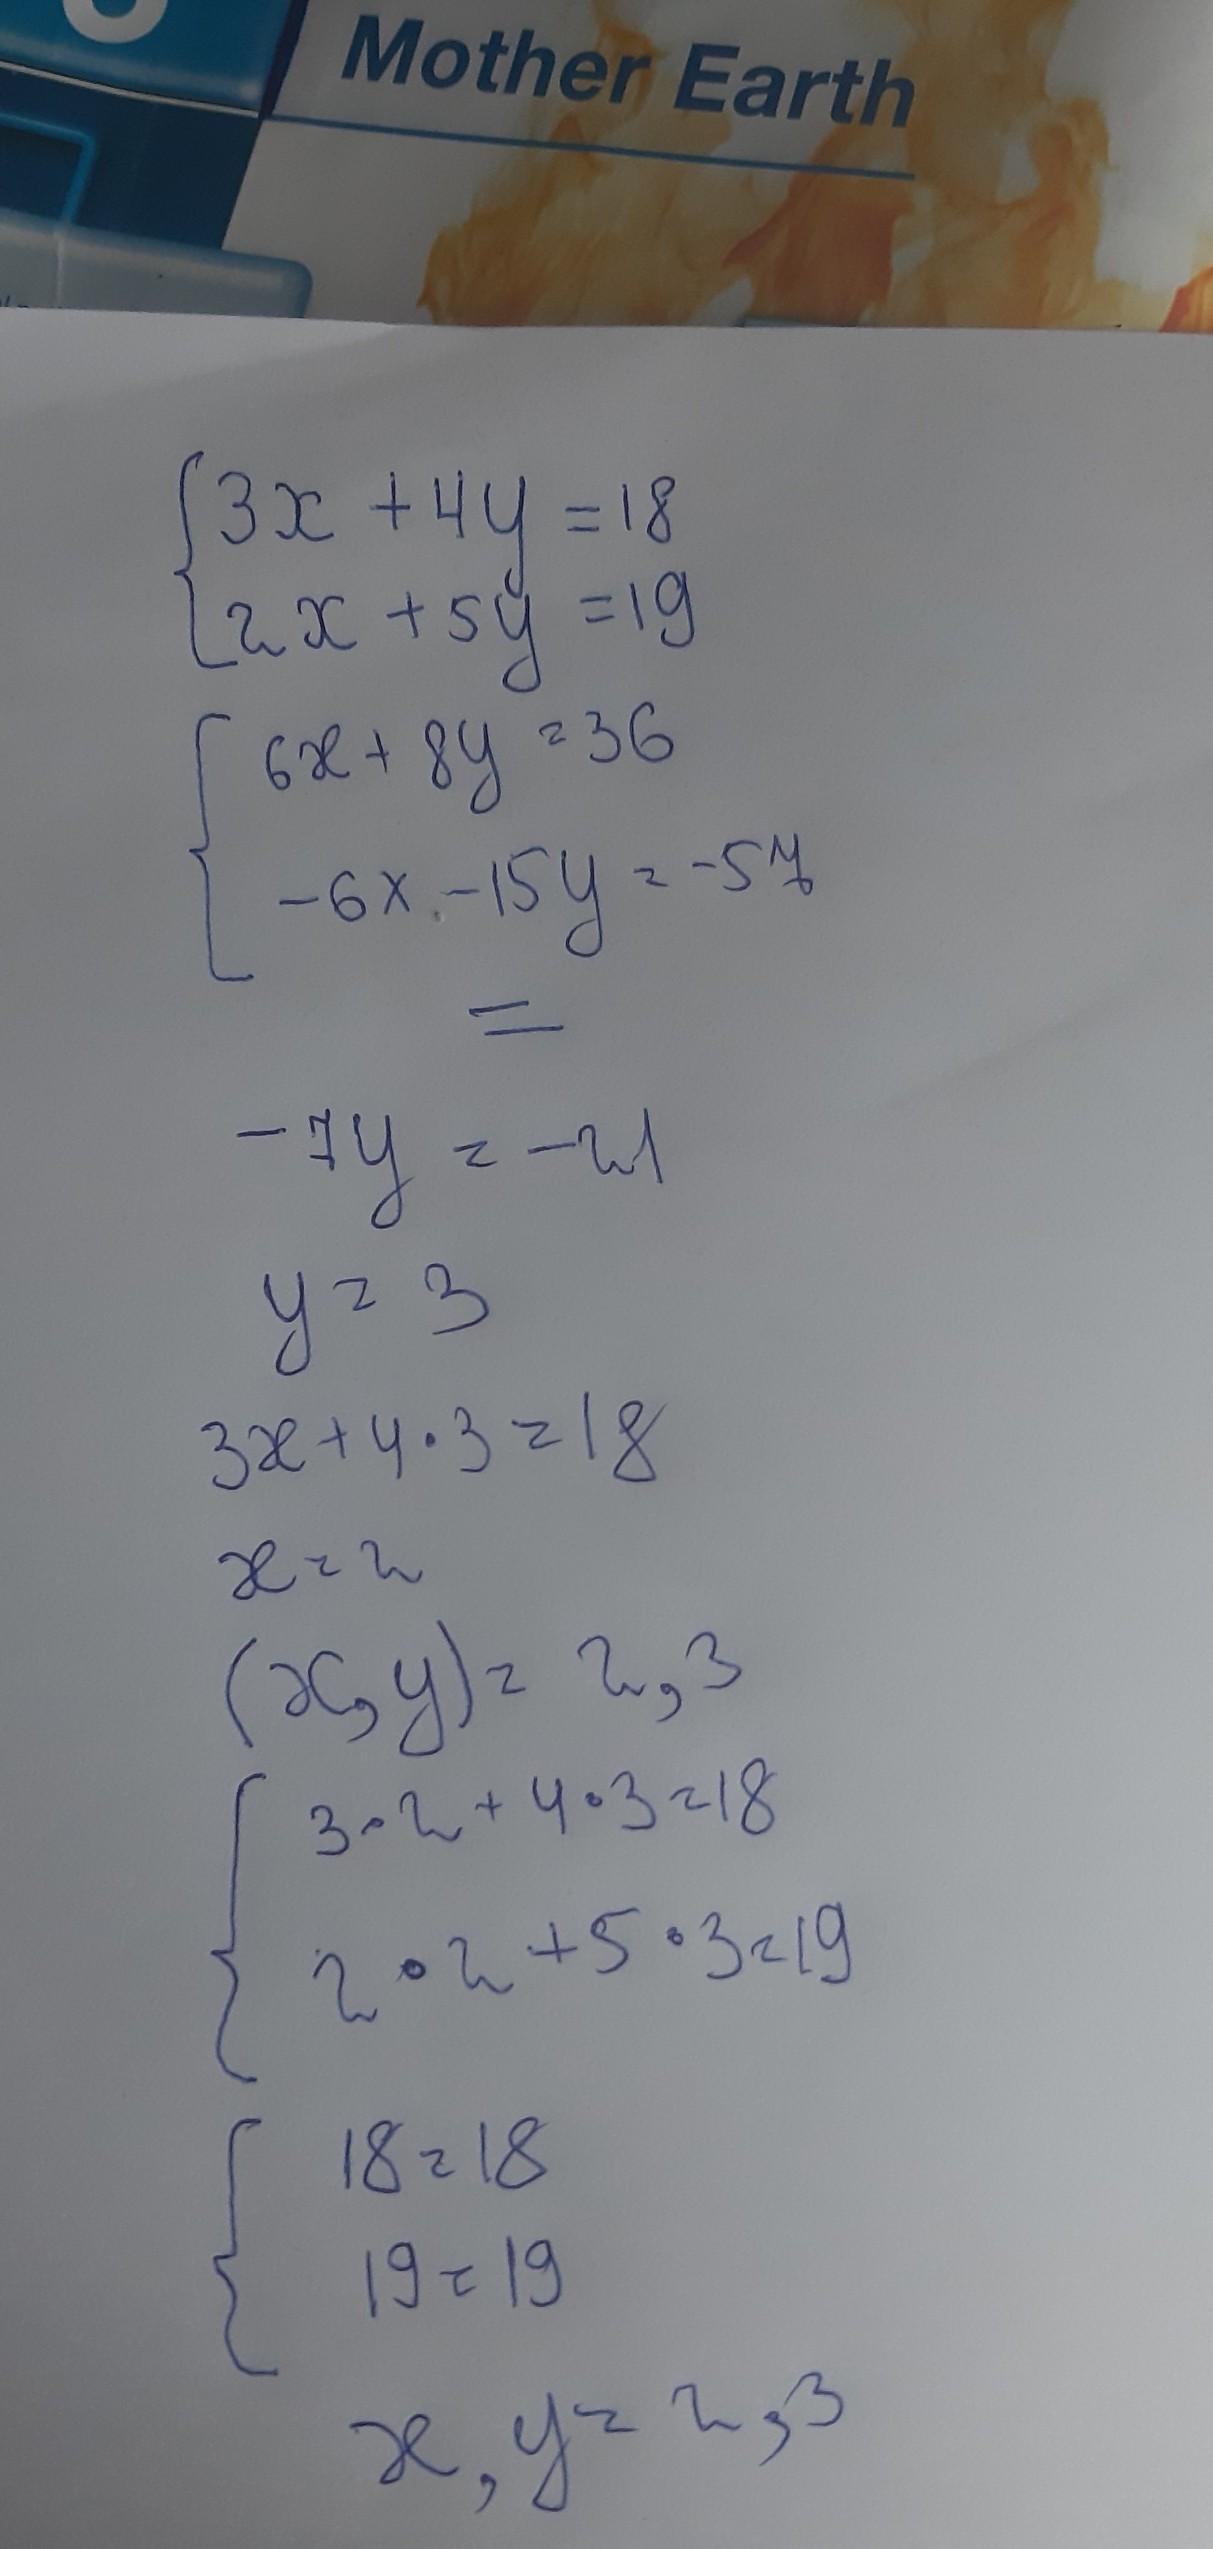 Mother Earth
3x + 4y = 18
2x + 5y = 19
6x + 8y = 36
-6x - 15y = -57
=
-7y = -21
y = 3
3x + 4 · 3 = 18
x = 2
(x, y) = 2, 3
3 · 2 + 4 · 3 = 18
2 · 2 + 5 · 3 = 19
18 = 18
19 = 19
x, y = 2, 3